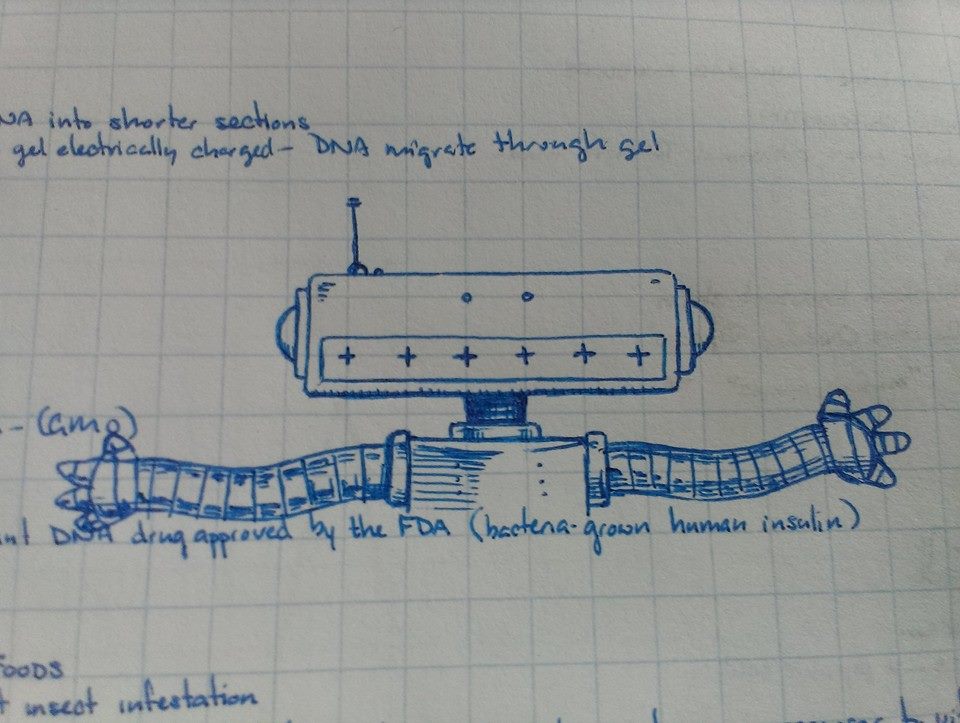 NA into shorter sections
gel electrically charged - DNA migrate through gel
+ + + + + +
- (amo)
nt DNA drug approved by the FDA (bacteria-grown human insulin)
FOODS
t insect infestation